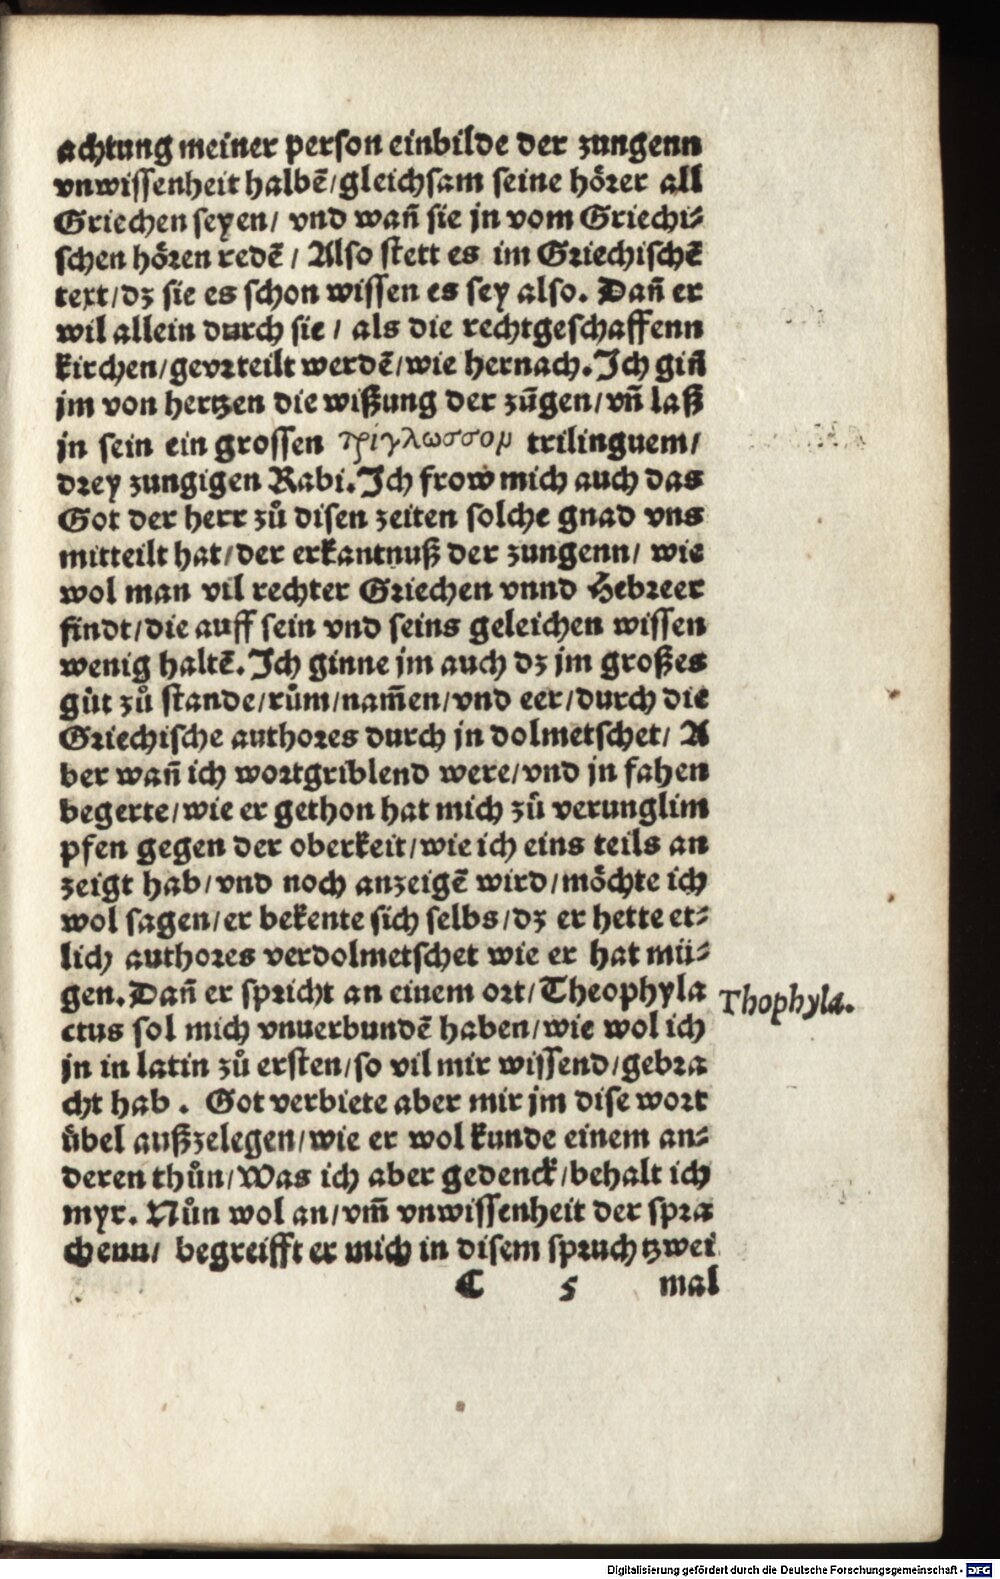 achtung meiner person einbilde der zungenn
vnwissenheit halbẽ/gleichsam seine hoͤrer all
Griechen seyen/ vnd wañ sie jn vom Griechi⸗
schen hoͤren redẽ/ Also stett es im Griechischẽ
text/dz sie es schon wissen es sey also. Dañ er
wil allein durch sie/ als die rechtgeschaffenn
kirchen/gevrteilt werdẽ/wie hernach. Ich giñ
jm von hertzen die wißung der zũgen/vñ laß
jn sein ein grossen τρίγλωσσομ trilinguem/
drey zungigen Rabi. Ich frow mich auch das
Got der herr zů disen zeiten solche gnad vns
mitteilt hat/der erkantnuß der zungenn/ wie
wol man vil rechter Griechen vnnd Hebreer
findt/die auff sein vnd seins geleichen wissen
wenig haltẽ. Ich ginne jm auch dz jm großes
gůt zů stande/rům/nam̃en/vnd eer/durch die
Griechische authores durch jn dolmetschet/ A
ber wañ ich wortgriblend were/vnd jn fahen
begerte/wie er gethon hat mich zů verunglim
pfen gegen der oberkeit/wie ich eins teils an
zeigt hab/vnd noch anzeigẽ wird/moͤchte ich
wol sagen/er bekente sich selbs/dz er hette et⸗
lich authores verdolmetschet wie er hat mü⸗
gen. Dañ er spricht an einem ort/Theophyla
ctus sol mich vnuerbundẽ haben/wie wol ich
jn in latin zů ersten/so vil mir wissend/gebra
cht hab. Got verbiete aber mir jm dise wort
übel außzelegen/wie er wol kunde einem an⸗
deren thůn/Was ich aber gedenck/behalt ich
myr. Nůn wol an/vm̃ vnwissenheit der spra
chenn/ begreifft er mich in disem spruch tzwei
C 5 mal
Thophyla.
Digitalisierung gefördert durch die Deutsche Forschungsgemeinschaft - DFG